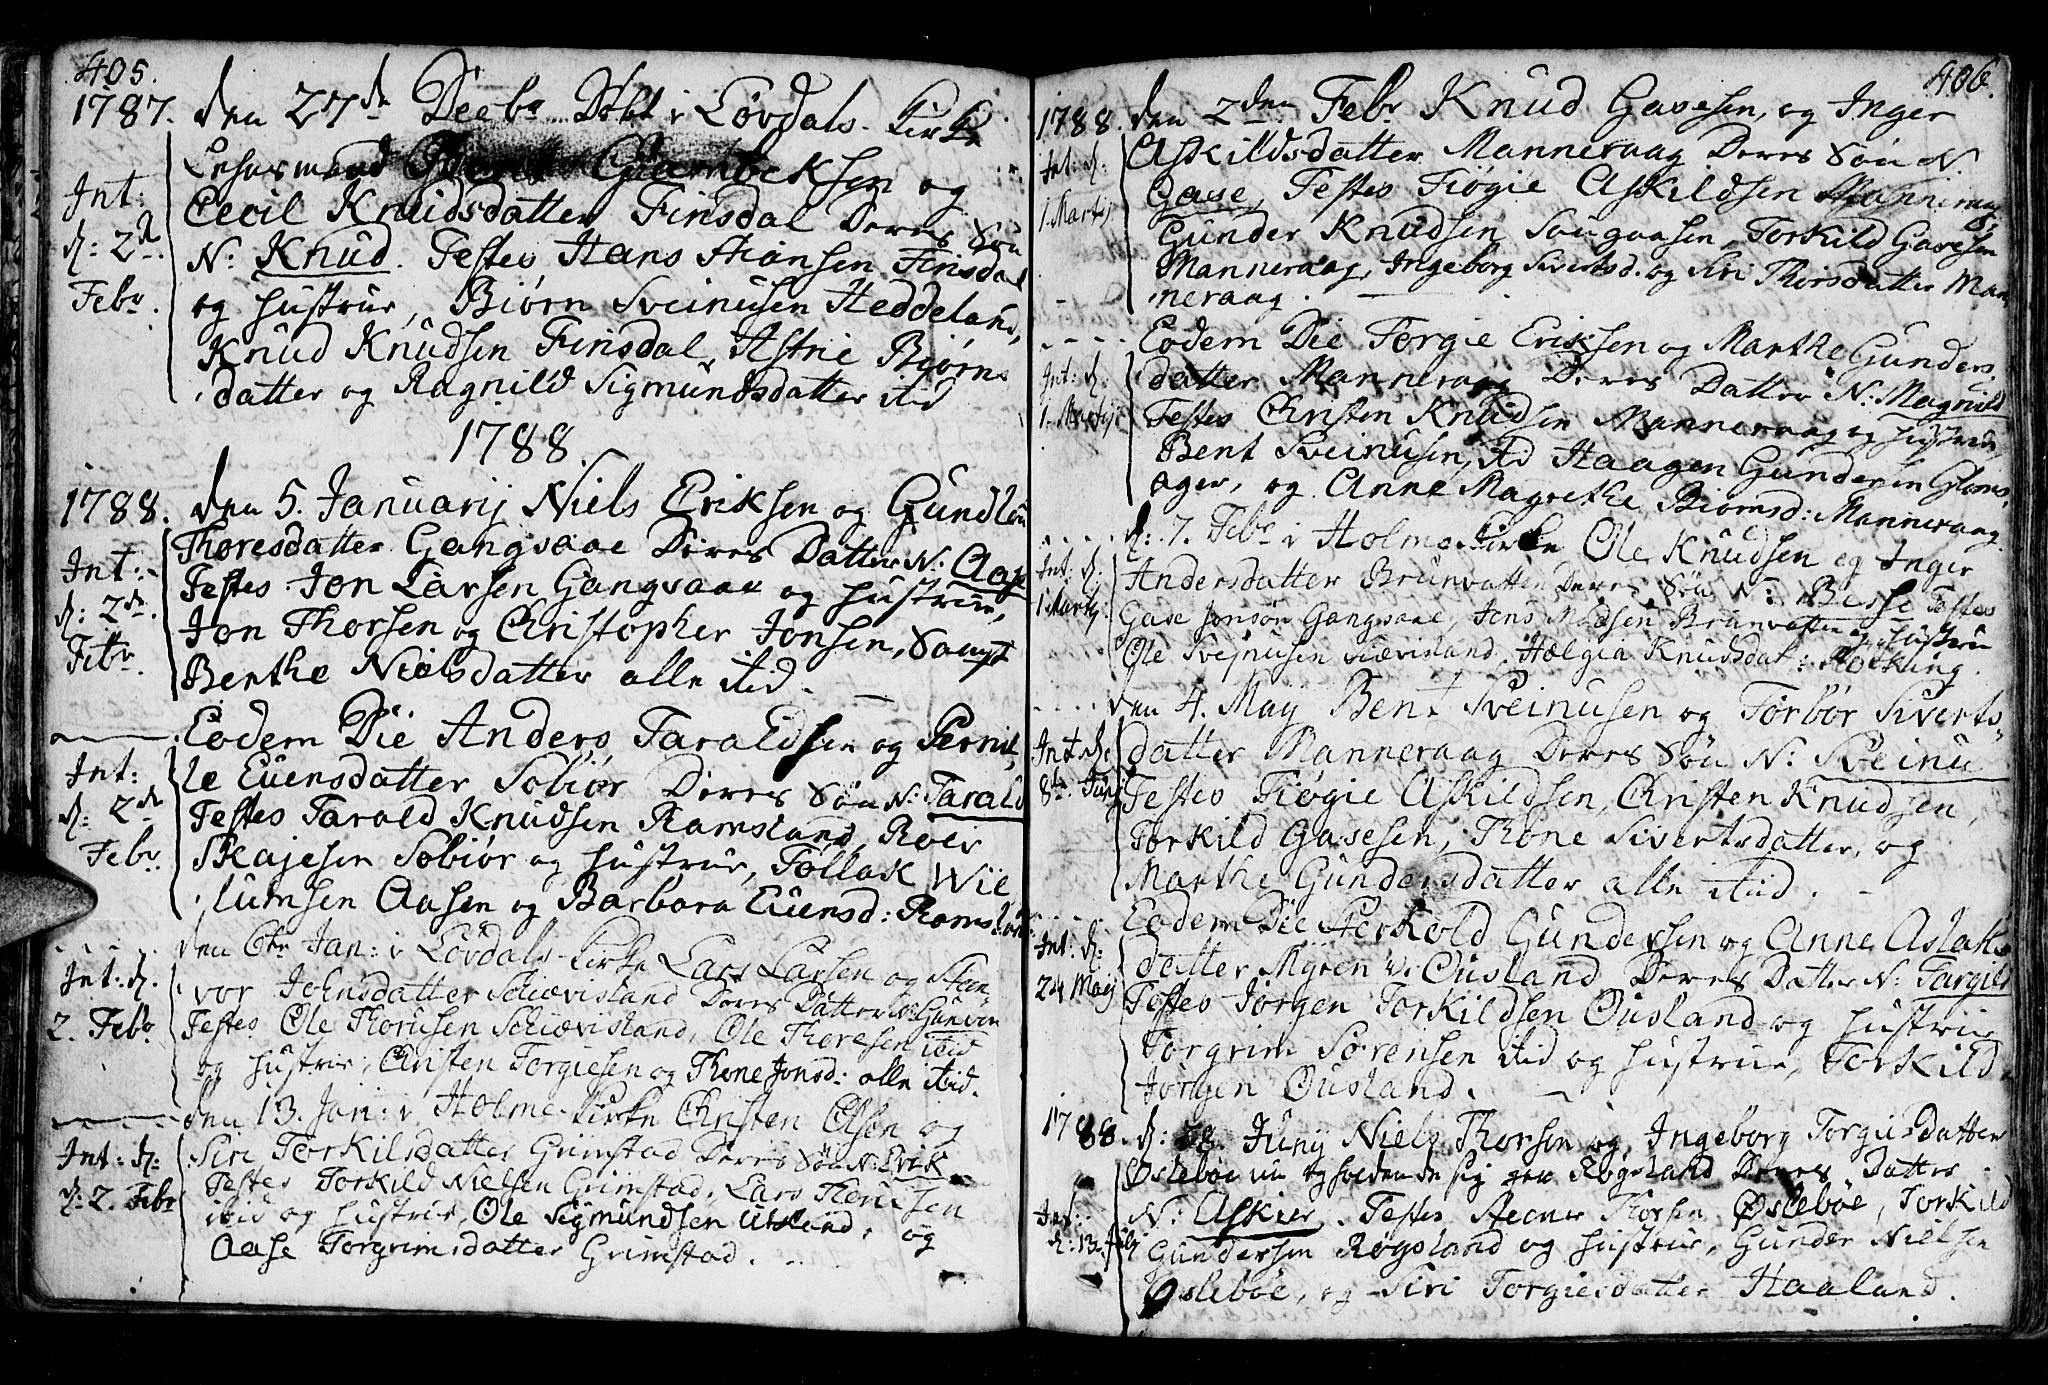 405.
1787. den 27de Decbr Døbt i Løvdals Kirke
Lehnsmand Gumbeksen og
Int: Cecil Knudsdatter Finsdal Deres Søn
d: 2de N: Knud. Testes Hans Stiansen Finsdal
Febr. og hustrue, Biørn Sveinusen Heddeland,
Knud Knudsen Finsdal, Astrie Biørns
datter og Ragnild Sigmundsdatter itid
1788
1788. den 5. Januarij Niels Eriksen og Gundlou
Thoresdatter Gangsaae Deres Datter N: Aase
Int: Testes Jon Larsen Gangsaae og hustrue,
d: 2de Jon Thorsen og Christopher Jonsen, Samt
Febr. Berthe Nielsdatter alle itid.
Eodem Die Anders Taraldsen og Pernil
Int: le Evensdatter Sobiør Deres Søn N: Tarald
d: 2de Testes Tarald Knudsen Ramsland, Roer
Febr. Skajesen Sobiør og hustrue, Follak Wil
lumsen Aasen og Barbora Evensd: Ramsland
den 6te Jan: i Løvdals Kirke Lars Larsen og Stan
Int: d: vor Johnsdatter Schiævisland Deres Datter N: Gunvor
2. Febr Testes Ole Thorusen Schiævisland, Ole Thoresen itid
og hustrue, Christen Torgiesen og Thone Jonsd: alle itid.
den 13. Jan: i Holme Kirke Christen Olsen og
Int: d: Siri Torkilsdatter Grimstad Deres Søn N: Erik
d: 2. Febr Testes Torkild Nielsen Grimstad, Lars Thorusen
itid og hustrue, Ole Sigmundsen Utsland, og
Aase Torgrimsdatter Grimstad.
406.
1788. den 2den Febr Knud Gasesen, og Inger
Int: d: Askildsdatter Manneraag Deres Søn N
1. Martij Gase, Testes Tiøgie Askildsen Manneraag
Gunder Knudsen Sougaasen, Torkild Gasesen
Manneraag, Ingeborg Sivertsd. og Siri Thorsdatter Man
neraag.
Eodem Die Torgie Eriksen og Marthe Gunders
Int: d: datter Manneraag Deres Datter N: Magnild
1. Martij: Testes Christen Knudsen Manneraag og hustrue
Bent Sveinusen, itid Haagen Gundersen Gloms
ager, og Anne Magrethe Biornsd: Manneraag.
d: 7. Febr i Holme Kirke Ole Knudsen og Inger
Int: d: Andersdatter Brunvatten Deres Søn N: Berse Testes
1 Martij: Gase Jonsøn Gangsaae, Jens Madsen Brunvatten og hustrue
Ole Svejnusen Sciævisland, Hælgia Knudsdat: Holking.
den 4. Maij Bent Sveinusen og Torbor Siverts
Int: d: datter Manneraag Deres Søn N: Sveinu
8de Junij Testes Tiøgie Askildsen, Christen Knudsen,
Torkild Gasesen, Thone Sivertsdatter, og
Marthe Gundersdatter alle itid.
Eodem Die Herkold Gundersen og Anne Aslaks
Int: d: datter Myren v: Ousland Deres Datter N: Targild
24 Maij Testes Jørgen Torkildsen Ousland og hustrue
Torgrim Sørensen itid og hustrue, Torkild
Jørgen Ousland.
1788. d: 8. Junij Niels Thorsen og Ingeborg Torgiesdatter
Øslebøe nu opholdende sig paa Røgsland Deres Datter
Int: N: Askier. Testes Aecner Thorsen Øslebøe, Torkild
d: 13. Julij Gundersen Røgsland og hustrue, Gunder Nielsen
Øslebøe, og Siri Torgiesdatter Haaland.